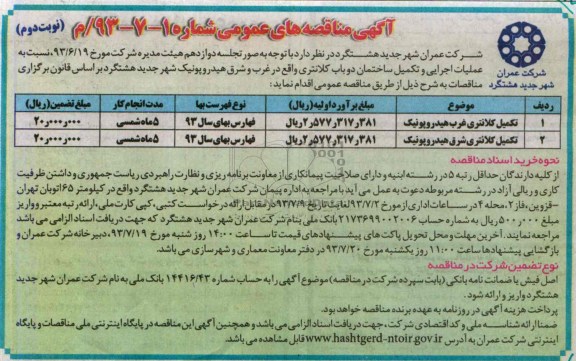 آگهی مناقصه های عمومی شماره ۱-۷-۹۳/م (نوبت دوم)
شرکت عمران
شهر جدید هشتگرد
شرکت عمران شهر جدید هشتگرد در نظر دارد با توجه به صورتجلسه دوازدهم هیئت مدیره شرکت مورخ ۹۳/۶/۱۹، نسبت به
عملیات اجرایی و تکمیل ساختمان دو باب کلانتری واقع در غرب و شرق هیدروپونیک شهر جدید هشتگرد بر اساس قانون برگزاری
مناقصات به شرح ذیل از طریق مناقصه عمومی اقدام نماید:
ردیف موضوع مبلغ برآورد اولیه (ریال) نوع فهرست بها مدت انجام کار مبلغ تضمین (ریال)
۱ تکمیل کلانتری غرب هیدروپونیک ۲٫۵۷۷٫۳۱۷٫۳۸۱ ریال فهارس بهای سال ۹۳ ۵ ماه شمسی ۲۰۰٫۰۰۰٫۰۰۰
۲ تکمیل کلانتری شرق هیدروپونیک ۲٫۵۷۷٫۳۱۷٫۳۸۱ ریال فهارس بهای سال ۹۳ ۵ ماه شمسی ۲۰۰٫۰۰۰٫۰۰۰
نحوه خرید اسناد مناقصه
از کلیه دارندگان حداقل رتبه ۵ در رشته ابنیه و دارای صلاحیت پیمانکاری از معاونت برنامه ریزی و نظارت راهبردی ریاست جمهوری و داشتن ظرفیت
کاری و ریالی آزاد در رشته مربوطه دعوت به عمل می آید با مراجعه به اداره پیمان شرکت عمران شهر جدید هشتگرد واقع در کیلومتر ۶۵ اتوبان تهران
-قزوین، فاز ۲، محله ۴ در ساعات اداری از مورخ ۹۳/۷/۲ لغایت تاریخ ۹۳/۷/۹ در مقابل ارائه درخواست کتبی، کپی کارت ملی، ارائه رتبه معتبر و واریز
مبلغ ۵۰۰٫۰۰۰ ریال به شماره حساب ۲۱۷۳۶۹۹۰۰۲۰۰۶ بانک ملی بنام شرکت عمران شهر جدید هشتگرد که جهت دریافت اسناد الزامی می باشد
مراجعه نمایند. آخرین مهلت و محل تحویل پاکت های پیشنهادهای قیمت تا ساعت ۱۴:۰۰ روز شنبه مورخ ۹۳/۷/۱۹، دبیرخانه شرکت عمران و
بازگشایی پیشنهادها ساعت ۱۱:۰۰ روز یکشنبه مورخ ۹۳/۷/۲۰ در دفتر معاونت معماری و شهرسازی می باشد.
نوع تضمین شرکت در مناقصه
اصل فیش یا ضمانت نامه بانکی (بابت سپرده شرکت در مناقصه) موضوع آگهی را به حساب شماره ۱۴۴۱۶/۴۳ بانک ملی به نام شرکت عمران شهر جدید
هشتگرد واریز و ارائه شود.
پرداخت هزینه آگهی در روزنامه به عهده برنده مناقصه خواهد بود.
ضمنا ارائه شناسه ملی و کد اقتصادی شرکت، جهت دریافت اسناد الزامی می باشد و همچنین آگهی این مناقصه در پایگاه اینترنتی ملی مناقصات و پایگاه
اینترنتی شرکت عمران به آدرس www.hashtgerd-ntoir.gov.ir قابل مشاهده می باشد.